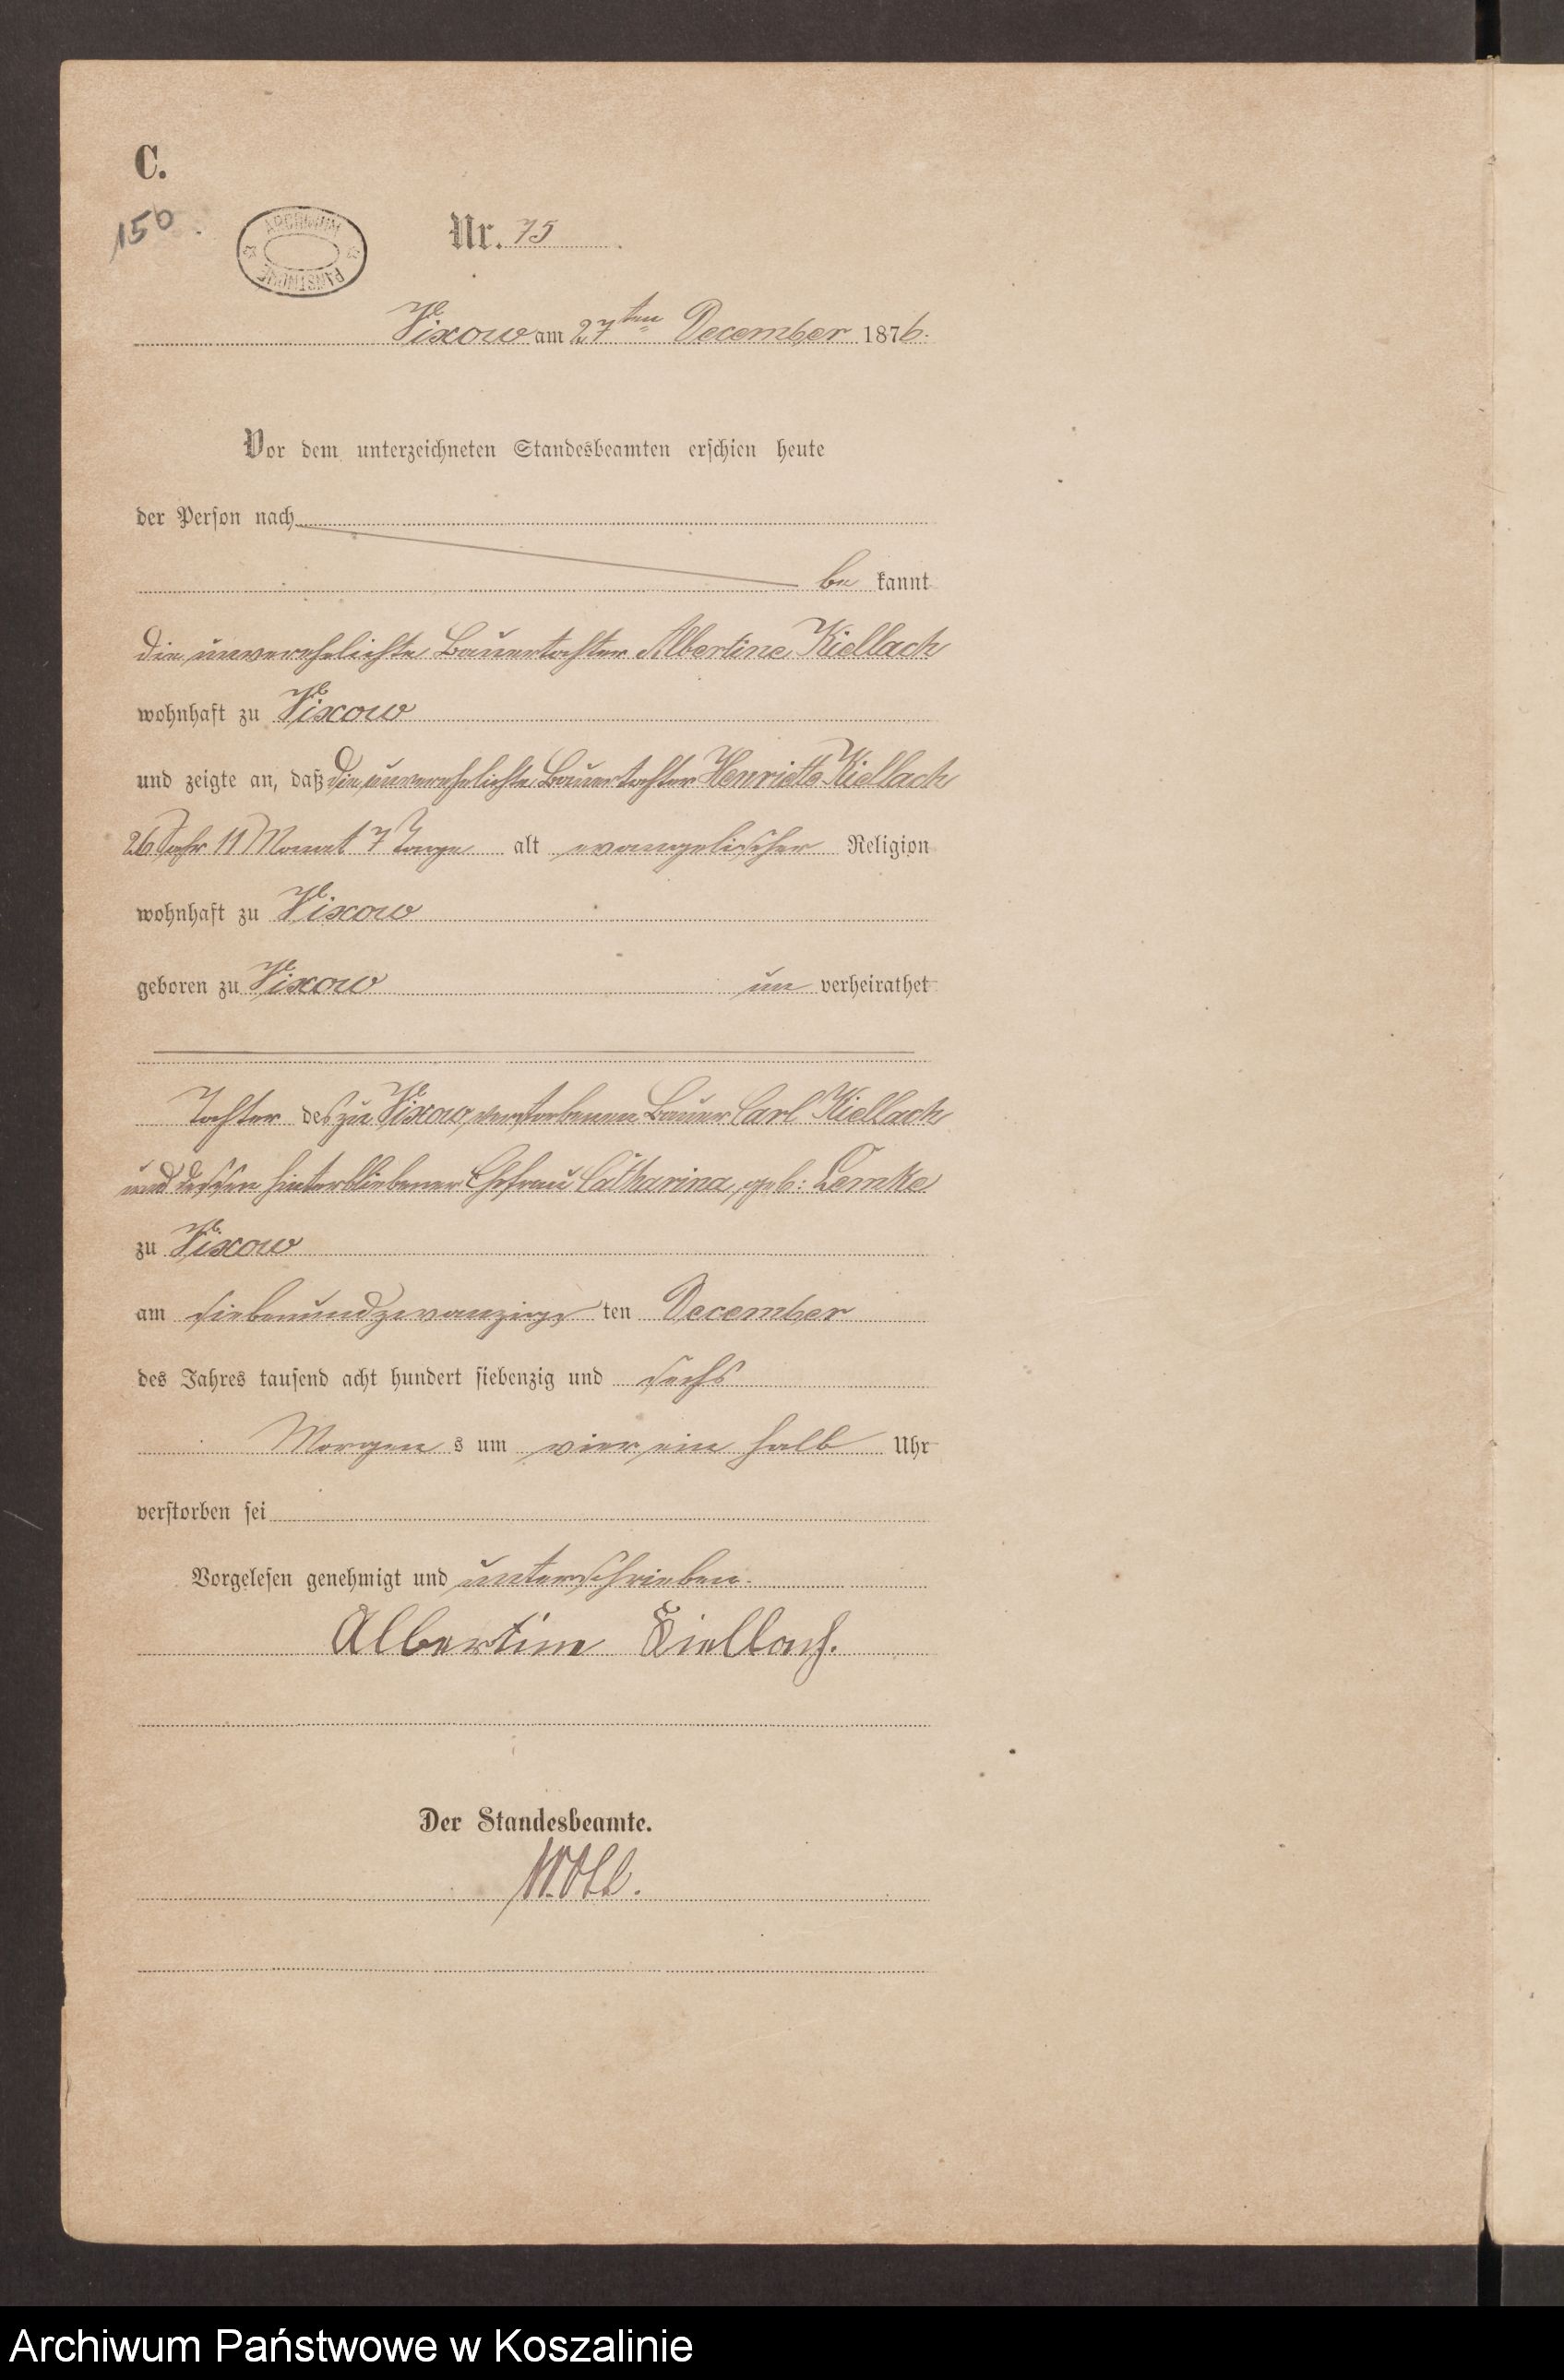 C.
150.
ARCHIWUM PAŃSTWOWE
Nr. 75.
Vixow am 27ten December 1876.
Vor dem unterzeichneten Standesbeamten erschien heute
der Person nach
be kannt
die unverehelichte Bauertochter Albertine Kiellach
wohnhaft zu Vixow
und zeigte an, daß die unverehelichte Bauertochter Henriette Kiellach
26 Jahr 11 Monat 7 Tage alt evangelischer Religion
wohnhaft zu Vixow
geboren zu Vixow un verheirathet
Tochter des zu Vixow verstorbenen Bauer Carl Kiellach
und dessen hinterbliebener Ehefrau Catharina, geb: Lemke
zu Vixow
am siebenundzwanzigs ten December
des Jahres tausend acht hundert siebenzig und sechs
Morgen s um vier ein halb Uhr
verstorben sei
Vorgelesen genehmigt und unterschrieben.
Albertine Kiellach.
Der Standesbeamte.
Archiwum Państwowe w Koszalinie